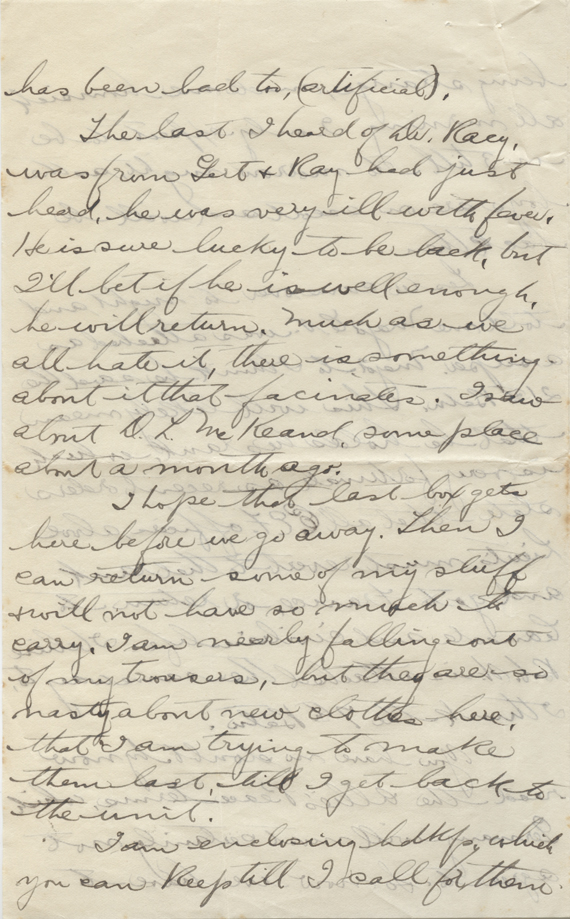 has been bad too, (artificial).
The last I heard of Dr. Racy,
was from Gert & Ray had just
heard, he was very ill with fever.
He is sure lucky to be back, but
I'll bet if he is well enough,
he will return. Much as we
all hate it, there is something
about it that facinates. I saw
about D. L. McKeand, some place
about a month ago.
I hope that last box gets
here before we go away. Then I
can return some of my stuff
& will not have so much to
carry. I am neerly falling out
of my trousers, but they are so
nasty about new clothes here,
that I am trying to make
them last, till I get back to
the unit.
I am enclosing hdkfs, which
you can keep till I call for them.